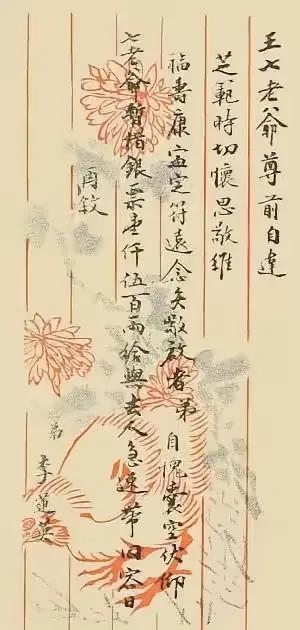 王七老爺尊前自違
芝範時切懷思敬維
福壽康寧定符遠念矣敬啟者弟自愧囊空伏仰
七老爺暫措銀票壹仟伍百兩給與去人急速帶回容日
再敘
弟李蓮英